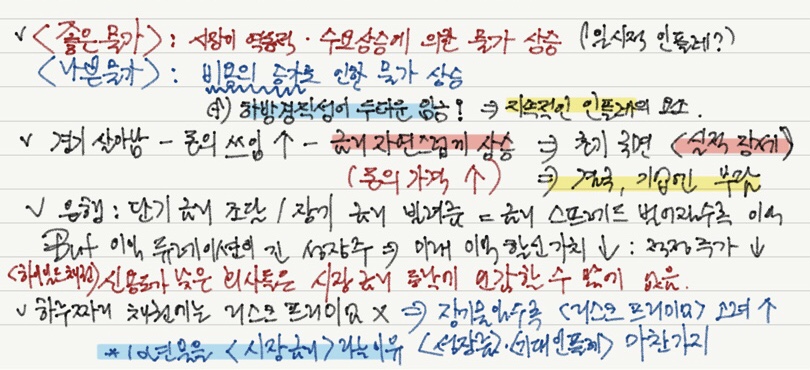 ✓ <좋은 물가> : 시장의 역동력 · 수요상승에 의한 물가 상승 (일시적 인플레?)
<나쁜물가> : 비용의 증가로 인한 물가 상승
예) 하방경직성이 두터운 임금! ⇒ 지속적인 인플레의 요소.
✓ 경기 살아남 - 돈의 쓰임 ↑ - 금리 자연스럽게 상승 ⇒ 초기 국면 <실적 장세>
(돈의 가격 ↑) ⇒ 결국, 기업엔 부담
✓ 은행 : 단기 금리 조달 / 장기 금리 빌려줌 = 금리 스프레드 벌어질수록 이익
But 이익 듀레이션만 긴 성장주 ⇒ 미래 이익 할인가치 ↓ : 적정주가 ↓
<하이일드채권> 신용도가 낮은 회사들은 시장 금리 등락에 민감할 수 밖에 없음.
✓ 하루짜리 채권에는 리스크 프리미엄 × ⇒ 장기물일수록 <리스크 프리미엄> 고려 ↑
* 10년물을 <시장금리> 라는 이유 <성장률>·<기대인플레> 마찬가지